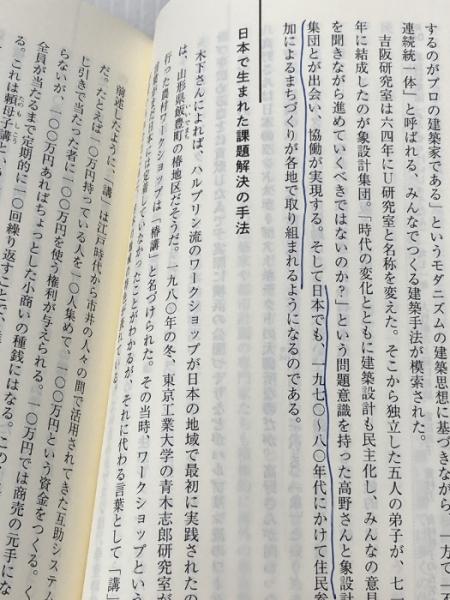 するのがプロの建築家である」というモダニズムの建築思想に基づきながら、一方で「不
連続統一体」と呼ばれる、みんなでつくる建築手法が模索された。
吉阪研究室は六四年にU研究室と名称を変えた。そこから独立した五人の弟子が、七一
年に結成したのが象設計集団。「時代の変化とともに建築設計も民主化し、みんなの意見
を聞きながら進めていくべきではないのか?」という問題意識を持った高野さんと象設計
集団とが出会い、協働が実現する。そして日本でも、一九七〇〜八〇年代にかけて住民参
加によるまちづくりが各地で取り組まれるようになるのである。
日本で生まれた課題解決の手法
木下さんによれば、ハルプリン流のワークショップが日本の地域で最初に実践されたの
は、山形県飯豊町の椿地区だそうだ。一九八〇年の冬、東京工業大学の青木志郎研究室が
行った農村ワークショップは「椿講」と名づけられた。その当時、ワークショップという
していなかったことがわかるが、それに代わる言葉として「講」
れている。
前述したように、「講」は江戸時代から市井の人々の間で活用されてきた互助システム
だ。たとえば一〇万円持っている人を一〇人集めて、一〇〇万円という資金をつくる。く
じ引きで当たった者に一〇〇万円を使う権利が与えられる。一〇万円では商売の元手にな
らないが、一〇〇万円あればちょっとした小商いの種銭にはなる。この
全員が当たるまで定期的に一〇回繰り返すことで、
る。これは頼母子講と